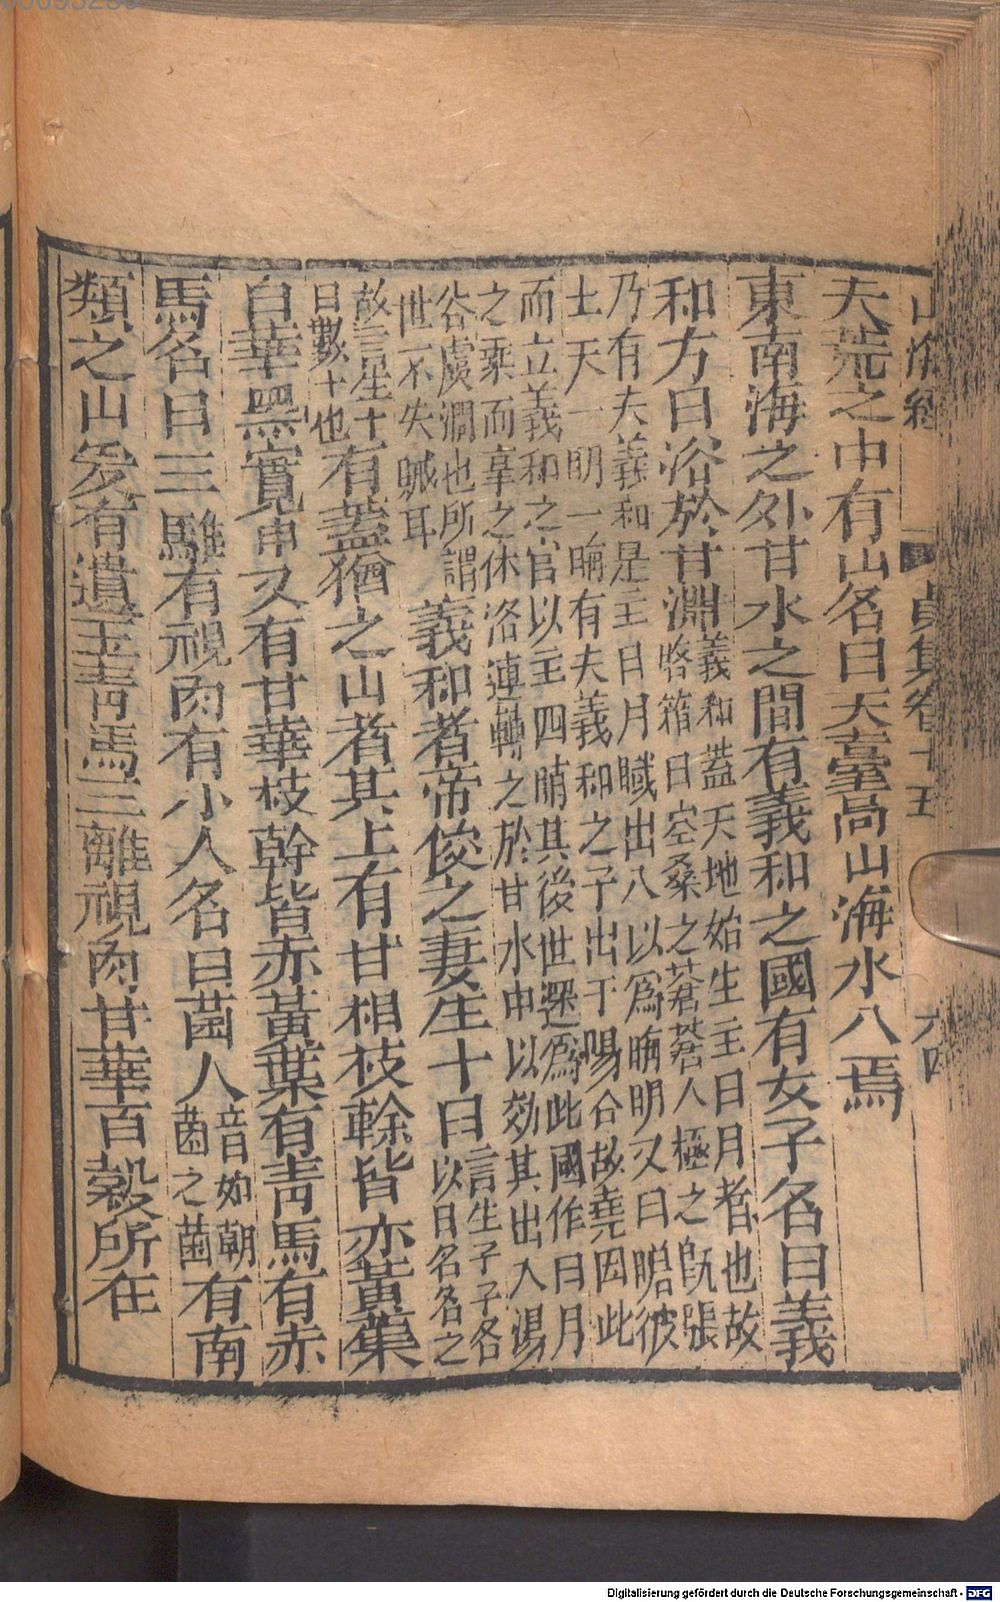 山海經 貞集卷十五 六四
大荒之中有山名曰天臺高山海水入焉
東南海之外甘水之間有義和之國有女子名曰義
和方日浴於甘淵義和蓋天地始生主日月者也故
啓箱曰空桑之蒼蒼人極之旣張
乃有夫義和是主日月職出入以爲晦明又曰瞻彼
上天一明一晦有夫義和之子出于暘谷故堯因此
而立義和之官以主四時其後世遂爲此國作日月
之乘而享之休洛運轉之於甘水中以効其出入湯
谷虞淵也所謂
世不失職耳
義和者帝俊之妻生十日言生子子各
以日名名之
故言生十
日數十也
有蓋猶之山者其上有甘柤枝榦皆赤黃葉
白華黑實東又有甘華枝幹皆赤黃葉有靑馬有赤
馬名曰三騅有視肉有小人名曰菌人音如朝
菌之菌
有南
類之山爰有遺玉靑馬三騅視肉甘華百糓所在
Digitalisierung gefördert durch die Deutsche Forschungsgemeinschaft - DFG